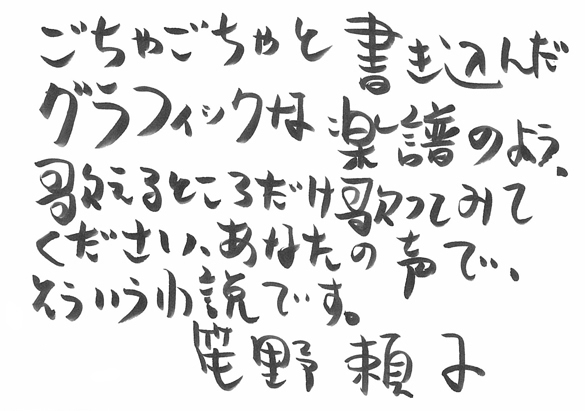 ごちゃごちゃと書き込んだ
グラフィックな楽譜のよう、
歌えるところだけ歌ってみて
ください、あなたの声で、、
そういう小説です。
笙野頼子